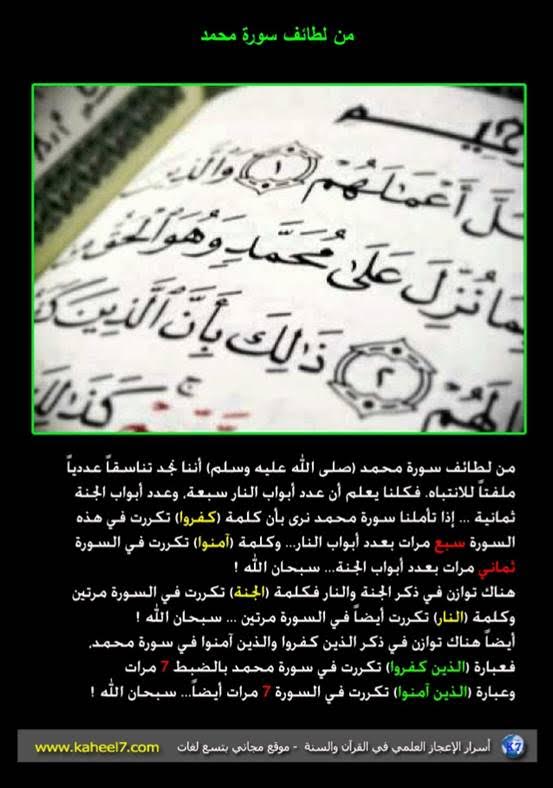 من لطائف سورة محمد
ـيم
ـلَّ أَعْمَـٰلَهُمْ ١ وَالَّذِينَ
بِمَا نُزِّلَ عَلَىٰ مُحَمَّدٍ وَهُوَ الْحَقُّ
بَالَهُمْ ٢ ذَٰلِكَ بِأَنَّ الَّذِينَ
كَذَٰلِكَ
من لطائف سورة محمد (صلى الله عليه وسلم) أننا نجد تناسقاً عددياً
ملفتاً للانتباه. فكلنا يعلم أن عدد أبواب النار سبعة، وعدد أبواب الجنة
ثمانية ... إذا تأملنا سورة محمد نرى بأن كلمة (كفروا) تكررت في هذه
السورة سبع مرات بعدد أبواب النار... وكلمة (آمنوا) تكررت في السورة
ثماني مرات بعدد أبواب الجنة... سبحان الله !
هناك توازن في ذكر الجنة والنار فكلمة (الجنة) تكررت في السورة مرتين
وكلمة (النار) تكررت أيضاً في السورة مرتين ... سبحان الله !
أيضاً هناك توازن في ذكر الذين كفروا والذين آمنوا في سورة محمد.
فعبارة (الذين كفروا) تكررت في سورة محمد بالضبط 7 مرات
وعبارة (الذين آمنوا) تكررت في السورة 7 مرات أيضاً... سبحان الله !
أسرار الإعجاز العلمي في القرآن والسنة - موقع مجاني بتسع لغات www.kaheel7.com
K7